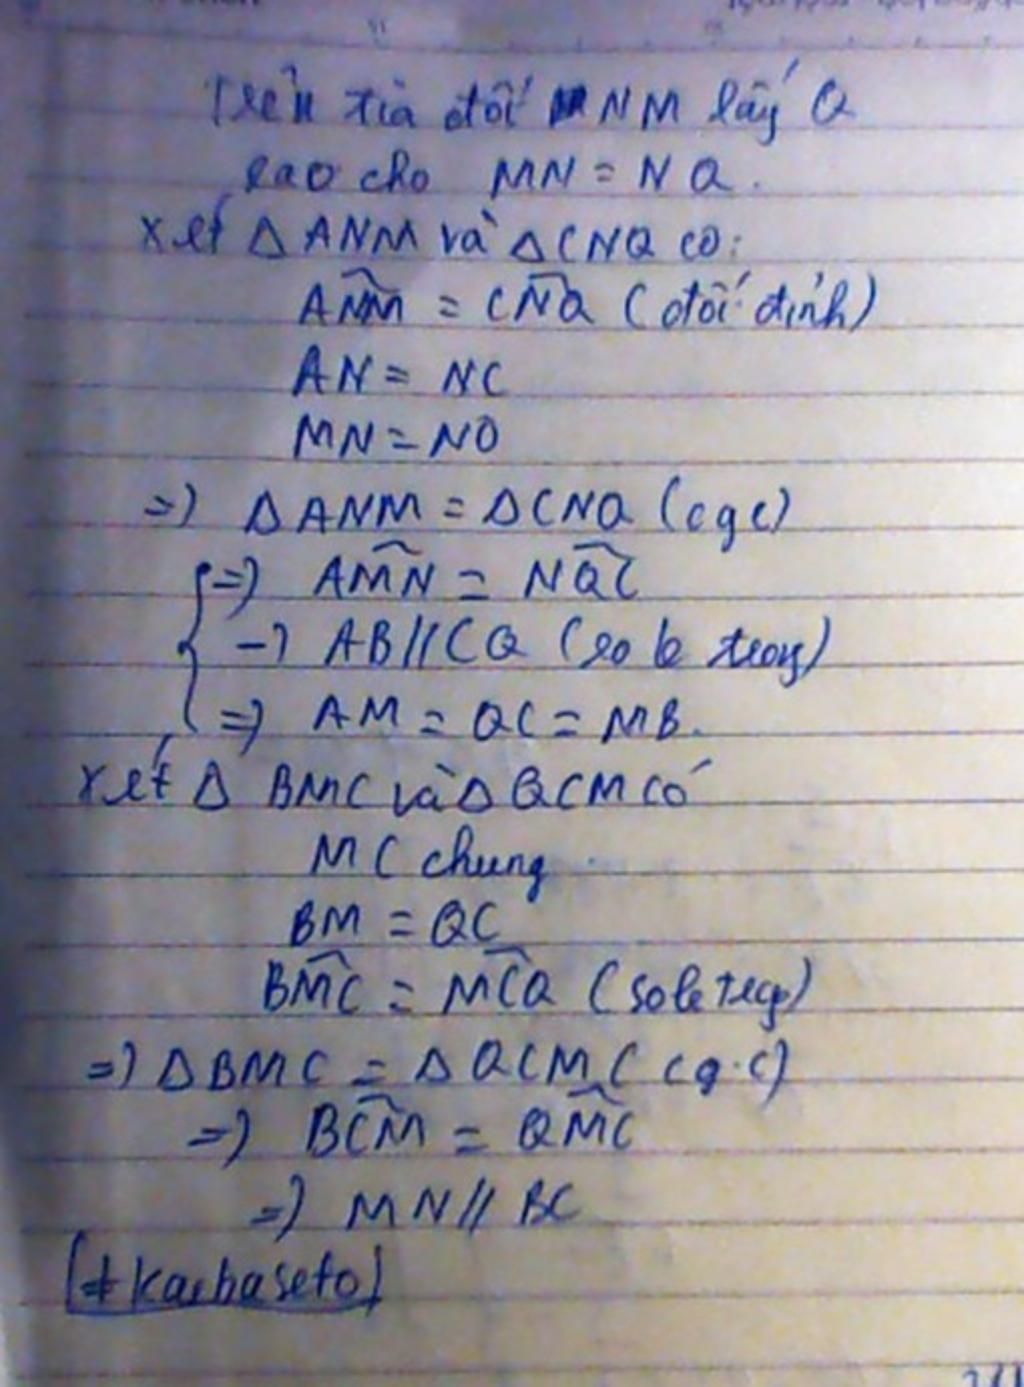 Trên tia đối NM lấy Q
sao cho MN = NQ.
Xét Δ ANM và Δ CNQ có:
AN̂M = CN̂Q (đối đỉnh)
AN = NC
MN = NQ
=> Δ ANM = Δ CNQ (cgc)
=> AM̂N = NQ̂C
-> AB // CQ (so le trong)
=> AM = QC = MB.
Xét Δ BMC và Δ QCM có
MC chung
BM = QC
BM̂C = MĈQ (so le trog)
=> Δ BMC = Δ QCM (c g.c)
=> BĈM = QM̂C
=> MN // BC
[#Kaibaseto]